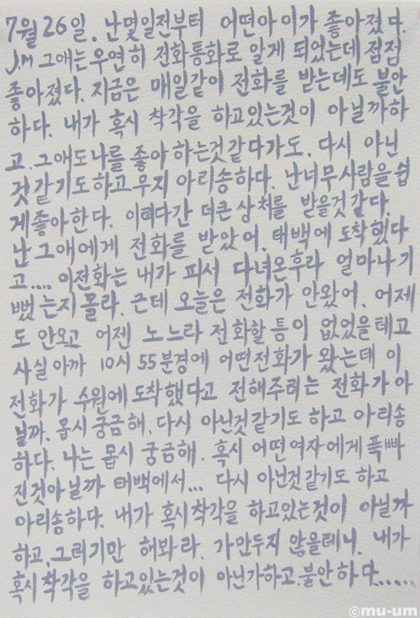 7월 26일. 난몇일전부터 어떤아이가 좋아졌다.
J.M 그애는우연히 전화통화로 알게 되었는데 점점
좋아졌다. 지금은 매일같이 전화를 받는데도 불안
하다. 내가 혹시 착각을 하고있는것이 아닐까하
고. 그애도나를 좋아하는것같다가도. 다시 아닌
것같기도하고우지 아리송하다. 난너무사람을쉽
게좋아한다. 이러다간 더큰 상처를 받을것같다.
난그애에게 전화를 받았어. 태백에 도착했다
고.... 이전화는 내가 피서 다녀온후라 얼마나기
뻤는지몰라. 근데 오늘은 전화가 안왔어. 어제
도 안오고 어젠 노느라 전화할틈이 없었을테고
사실아까 10시 55분경에 어떤전화가 왔는데 이
전화가 수원에도착했다고 전해주려는 전화가아
닐까. 몹시궁금해. 다시 아닌것같기도 하고 아리송
하다. 나는 몹시 궁금해. 혹시 어떤여자에게 푹빠
진것아닐까 태백에서... 다시 아닌것같기도 하고
아리송하다. 내가 혹시착각을 하고있는것이 아닐까
하고. 그러기만 해봐라. 가만두지 않을테니. 내가
혹시착각을 하고있는것이 아닌가하고.불안하다......
©mu-um